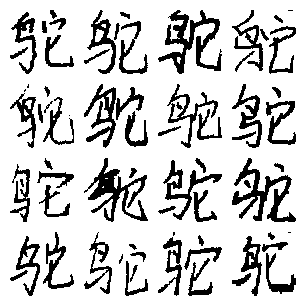 鸵鸵鸵鸵
鸵鸵鸵鸵
鸵鸵鸵鸵
鸵鸵鸵鸵